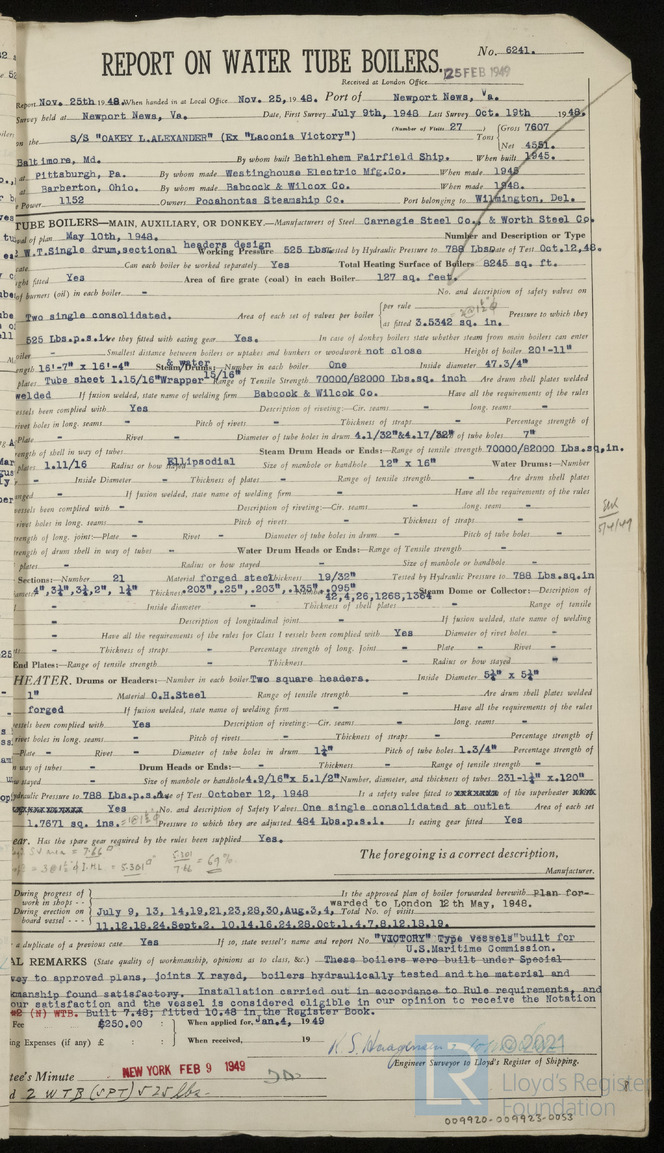 No. 6241.
REPORT ON WATER TUBE BOILERS.
Received at London Office 25 FEB 1949
Report Nov. 25th 1948. When handed in at Local Office Nov. 25, 1948. Port of Newport News, Va.
Survey held at Newport News, Va. Date, First Survey July 9th, 1948 Last Survey Oct. 19th 1948.
(Number of Visits 27 )
on the S/S "OAKEY L.ALEXANDER" (Ex "Laconia Victory") Tons {Gross 7607
Net 4551.
Baltimore, Md. By whom built Bethlehem Fairfield Ship. When built 1945.
at Pittsburg, Pa. By whom made Westinghouse Electric Mfg.Co. When made 1945
at Barberton, Ohio. By whom made Babcock & Wilcox Co. When made 1948.
Power 1152 Owners Pocahontas Steamship Co. Port belonging to Wilmington, Del.
TUBE BOILERS—MAIN, AUXILIARY, OR DONKEY.—Manufacturers of Steel Carnegie Steel Co., & Worth Steel Co.
of plan May 10th, 1948. Number and Description or Type
W.T.Single drum,sectional headers design Working Pressure 525 Lbs. Tested by Hydraulic Pressure to 788 Lbs. Date of Test Oct.12,48.
Can each boiler be worked separately Yes Total Heating Surface of Boilers 8245 sq. ft.
fitted Yes Area of fire grate (coal) in each Boiler 127 sq. feet.
of burners (oil) in each boiler - No. and description of safety valves on
Two single consolidated. Area of each set of valves per boiler {per rule
as fitted 3.5342 sq. in. Pressure to which they
525 Lbs.p.s.i. Are they fitted with easing gear Yes. In case of donkey boilers state whether steam from main boilers can enter
- Smallest distance between boilers or uptakes and bunkers or woodwork not close Height of boiler 20'-11"
16'-7" x 16'-4" Steam & water Drums:—Number in each boiler One Inside diameter 47.3/4"
plates Tube sheet 1.15/16" Wrapper 15/16" Range of Tensile Strength 70000/82000 Lbs.sq. inch Are drum shell plates welded
welded If fusion welded, state name of welding firm Babcock & Wilcok Co. Have all the requirements of the rules
vessels been complied with Yes Description of riveting:—Cir. seams - long. seams -
rivet holes in long. seams - Pitch of rivets - Thickness of straps - Percentage strength of
Plate - Rivet - Diameter of tube holes in drum 4.1/32"&4.17/32" of tube holes 7"
of shell in way of tubes - Steam Drum Heads or Ends:—Range of tensile strength 70000/82000 Lbs.sq.in.
1.11/16 Radius or how Ellipsodial Size of manhole or handhole 12" x 16" Water Drums:—Number
- Inside Diameter - Thickness of plates - Range of tensile strength - Are drum shell plates
- If fusion welded, state name of welding firm - Have all the requirements of the rules
vessels been complied with - Description of riveting:—Cir. seams - long. seam -
rivet holes in long. seams - Pitch of rivets - Thickness of straps -
of long. joint:—Plate - Rivet - Diameter of tube holes in drum - Pitch of tube holes -
strength of drum shell in way of tubes - Water Drum Heads or Ends:—Range of Tensile strength -
plates - Radius or how stayed - Size of manhole or handhole -
Sections:—Number 21 Material forged steel Thickness 19/32" Tested by Hydraulic Pressure to 788 Lbs.sq.in
4",3¼",3¼,2", 1¼" Thickness .203",.25",.203",.135",.095" Number 42,4,26,1268,1364 Steam Dome or Collector:—Description of
Inside diameter - Thickness of shell plates - Range of tensile
- Description of longitudinal joint - If fusion welded, state name of welding
Have all the requirements of the rules for Class I vessels been complied with Yes Diameter of rivet holes -
Thickness of straps - Percentage strength of long. Joint - Plate - Rivet -
End Plates:—Range of tensile strength - Thickness - Radius or how stayed "
HEATER. Drums or Headers:—Number in each boiler Two square headers. Inside Diameter 5¼" x 5¼"
1" Material O.H.Steel Range of tensile strength - Are drum shell plates welded
forged If fusion welded, state name of welding firm - Have all the requirements of the rules
vessels been complied with Yes Description of riveting:—Cir. seams - long. seams -
rivet holes in long. seams - Pitch of rivets - Thickness of straps - Percentage strength of
Plate - Rivet - Diameter of tube holes in drum 1¼" Pitch of tube holes 1.3/4" Percentage strength of
way of tubes - Drum Heads or Ends:— - Thickness - Range of tensile strength -
stayed - Size of manhole or handhole 4.9/16"x 5.1/2" Number, diameter, and thickness of tubes 231-1¼" x.120"
Hydraulic Pressure to 788 Lbs.p.s.i. Date of Test October 12, 1948 Is a safety valve fitted to xxxxxxx of the superheater xxxx
xxxxxxxxxxx Yes No. and description of Safety Valves One single consolidated at outlet Area of each set
1.7671 sq. ins. = 1@1½ φ Pressure to which they are adjusted 484 Lbs.p.s.i. Is easing gear fitted Yes
Has the spare gear required by the rules been supplied Yes.
= 7.66
= 5.301
5.301
7.66 = 69%
The foregoing is a correct description,
Manufacturer.
During progress of work in shops - -
Is the approved plan of boiler forwarded herewith Plan for-
warded to London 12th May, 1948.
During erection on board vessel - - - July 9, 13, 14,19,21,23,28,30,Aug.3,4, Total No. of visits
11,12,18,24,Sept.2, 10,14,16,24,28,Oct.1,4,7,8,12,18,19.
a duplicate of a previous case Yes If so, state vessel's name and report No. "VICTORY" Type Vessels built for
U.S.Maritime Commission.
AL REMARKS (State quality of workmanship, opinions as to class, &c.) These boilers were built under Special
vey to approved plans, joints X rayed, boilers hydraulically tested and the material and
kmanship found satisfactory. Installation carried out in accordance to Rule requirements, and
our satisfaction and the vessel is considered eligible in our opinion to receive the Notation
(N) WTB. Built 7.48; fitted 10.48 in the Register Book.
Fee $250.00 : When applied for, Jan.4, 1949
ing Expenses (if any) £ : : When received, 19
Engineer Surveyor to Lloyd's Register of Shipping.
tee's Minute NEW YORK FEB 9 1949
2 WTB (SPT) 525 lbs.
© 2021
LR
Lloyd's Register
Foundation
009920-009923-0053